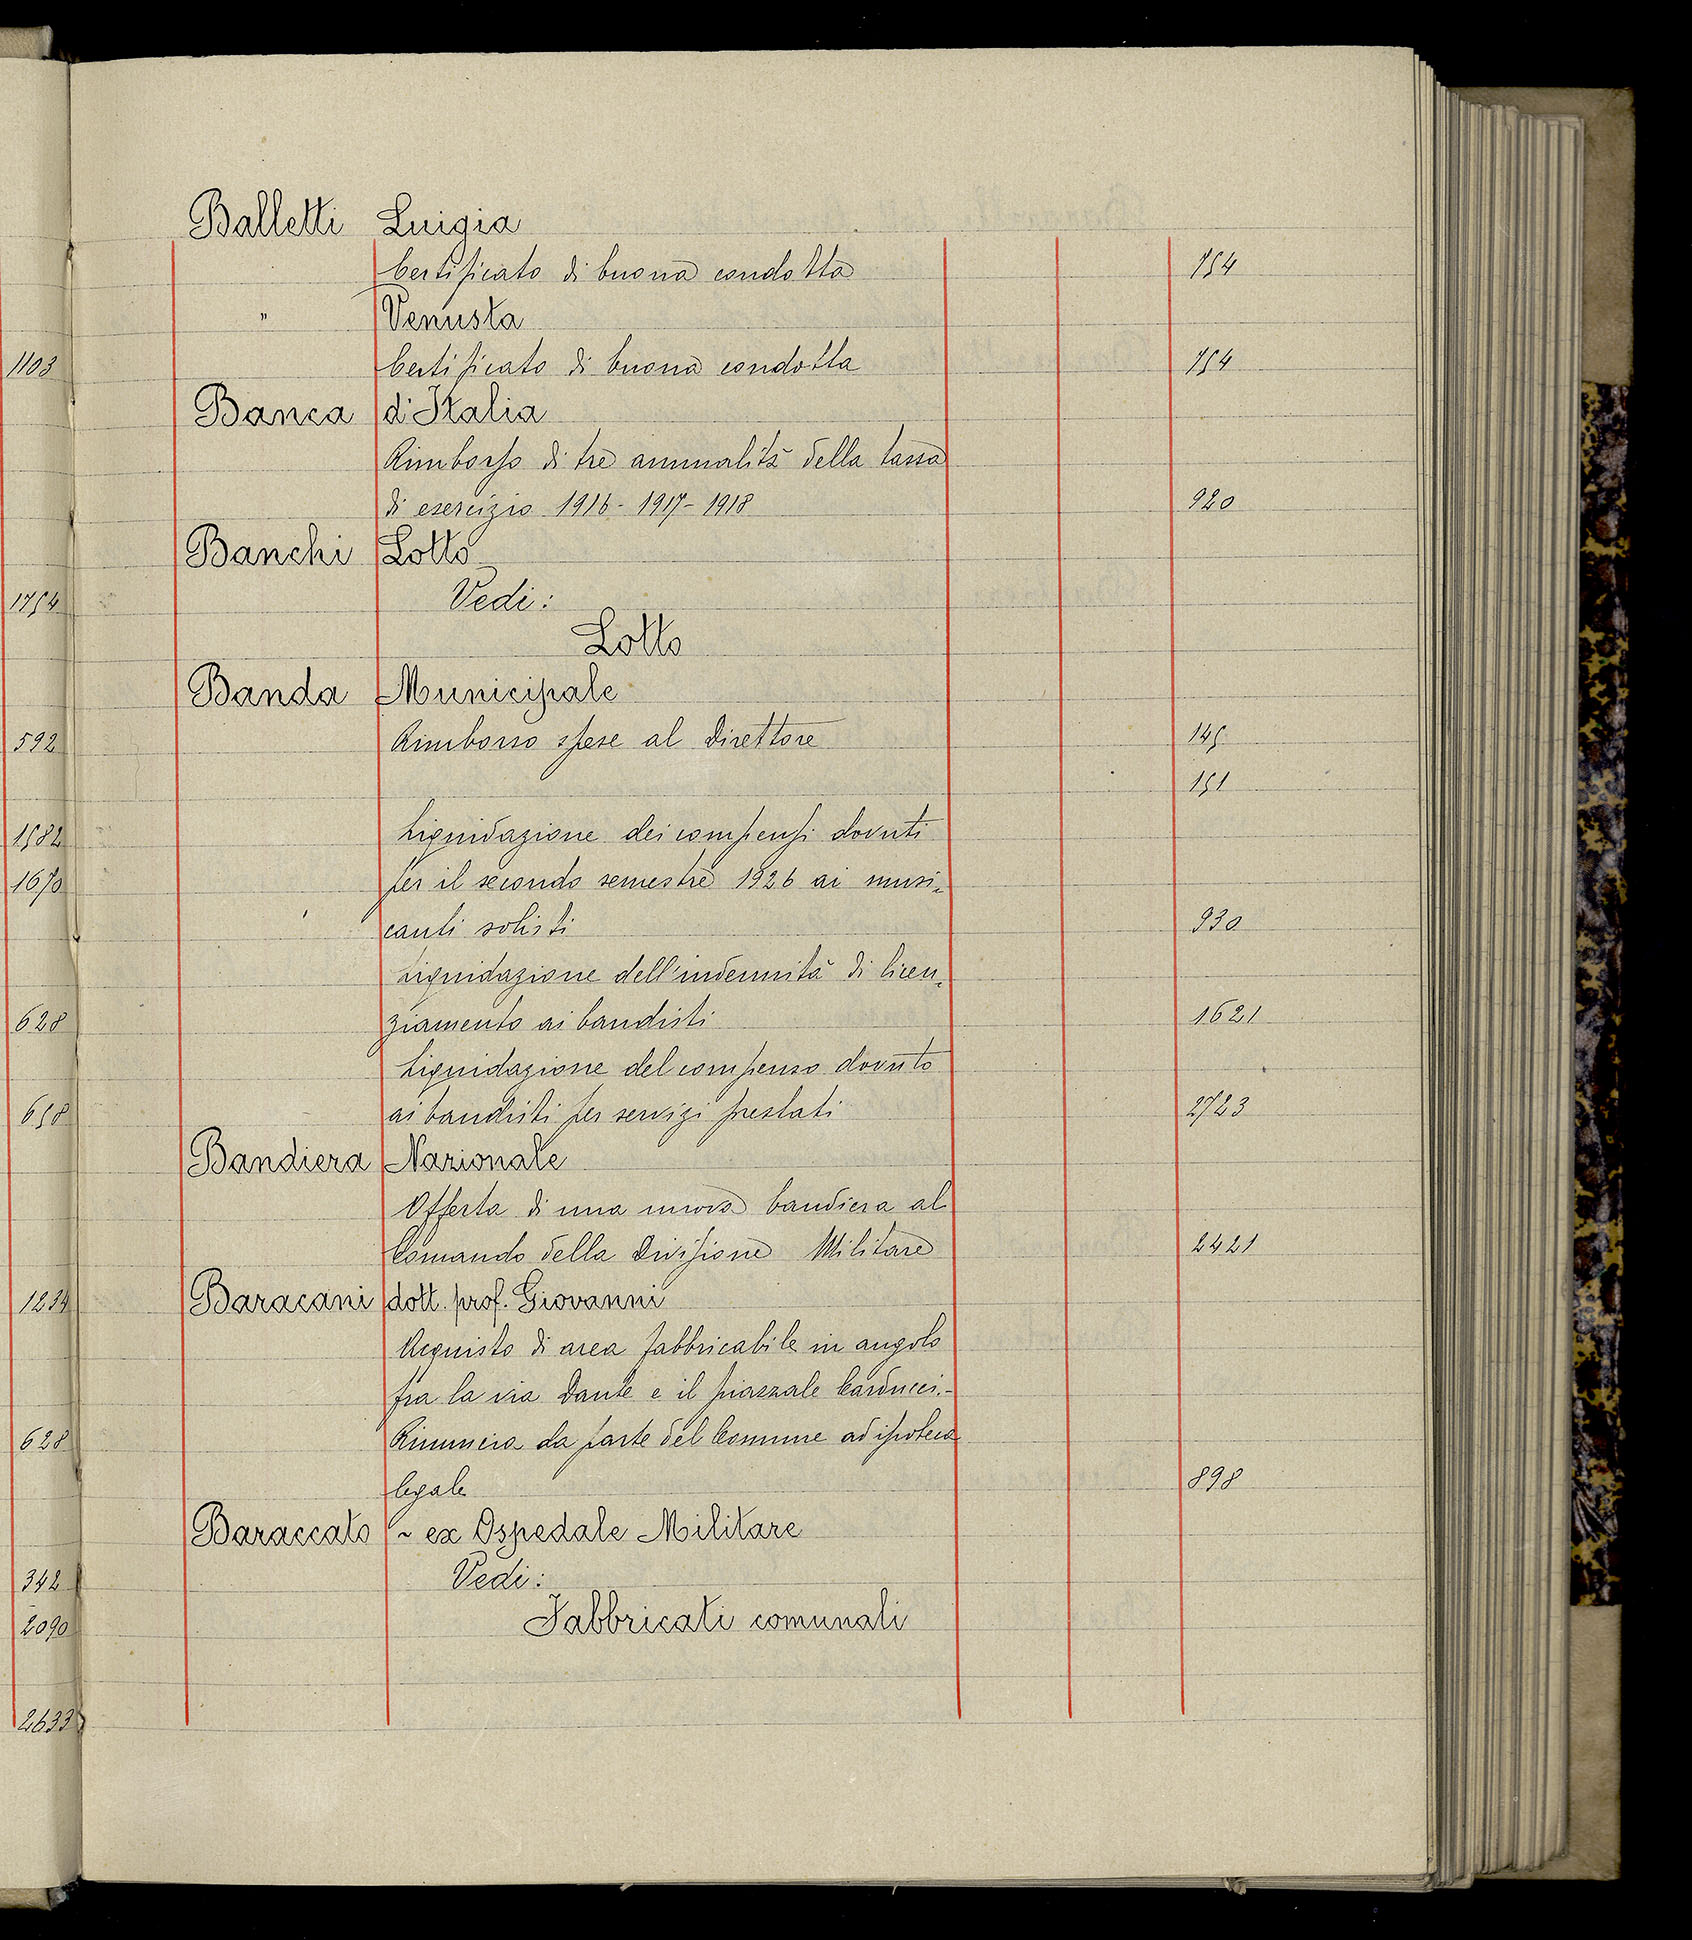 Balletti Luigia
Certificato di buona condotta 754
" Venusta
Certificato di buona condotta 754
Banca d'Italia
Rimborso di tre annualità della tassa
di esercizio 1916 - 1917 - 1918 920
Banchi Lotto
Vedi:
Lotto
Banda Municipale
Rimborso spese al Direttore 145
151
Liquidazione dei compensi dovuti
per il secondo semestre 1926 ai musi=
canti solisti 930
Liquidazione dell'indennità di licen=
ziamento ai bandisti 1621
Liquidazione del compenso dovuto
ai bandisti per servizi prestati 2723
Bandiera Nazionale
Offerta di una nuova bandiera al
Comando della Divisione Militare 2421
Baracani dott. prof. Giovanni
Acquisto di area fabbricabile in angolo
fra la via Dante e il piazzale Carducci.-
Rinuncia da parte del Comune ad ipoteca
legale 898
Baraccato ~ ex Ospedale Militare
Vedi:
Fabbricati comunali
1103
1754
592
1582
1670
628
658
1234
628
342
2090
2633